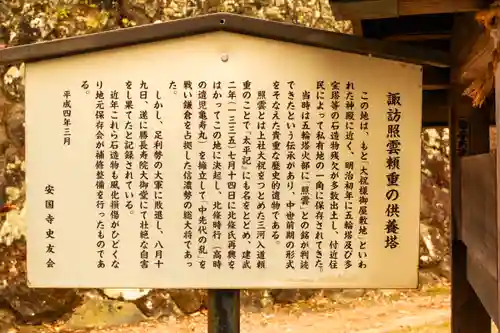 諏訪照雲頼重の供養塔
この地は、もと「大祝様御屋敷地」といわ
れた神殿に近く、明治初年に五輪塔及び多
宝塔等の石造物残欠が多数出土し、付近住
民によって私有地の一角に保存されてきた。
当時は五輪塔火部に「照雲」との銘が判読
できたという伝承があり、中世前期の形式
をそなえた貴重な歴史的遺物である。
照雲とは上社大祝をつとめた三河入道頼
重のことで、『太平記』にも名をとどめ、建武
二年(一三三五)七月十四日に北條氏再興を
はかってこの地に決起し、北條時行(高時
の遺児亀寿丸)を擁立して「中先代の乱」を
戦い鎌倉を占拠した信濃勢の総大将であっ
た。
しかし、足利勢の大軍に敗退し、八月十
九日、遂に勝長寿院大御堂にて壮絶な自害
をし果てたと記録されている。
近年これら石造物も風化損傷がひどくな
り地元保存会が補修整備を行ったものであ
る。
平成四年三月
安国寺史友会